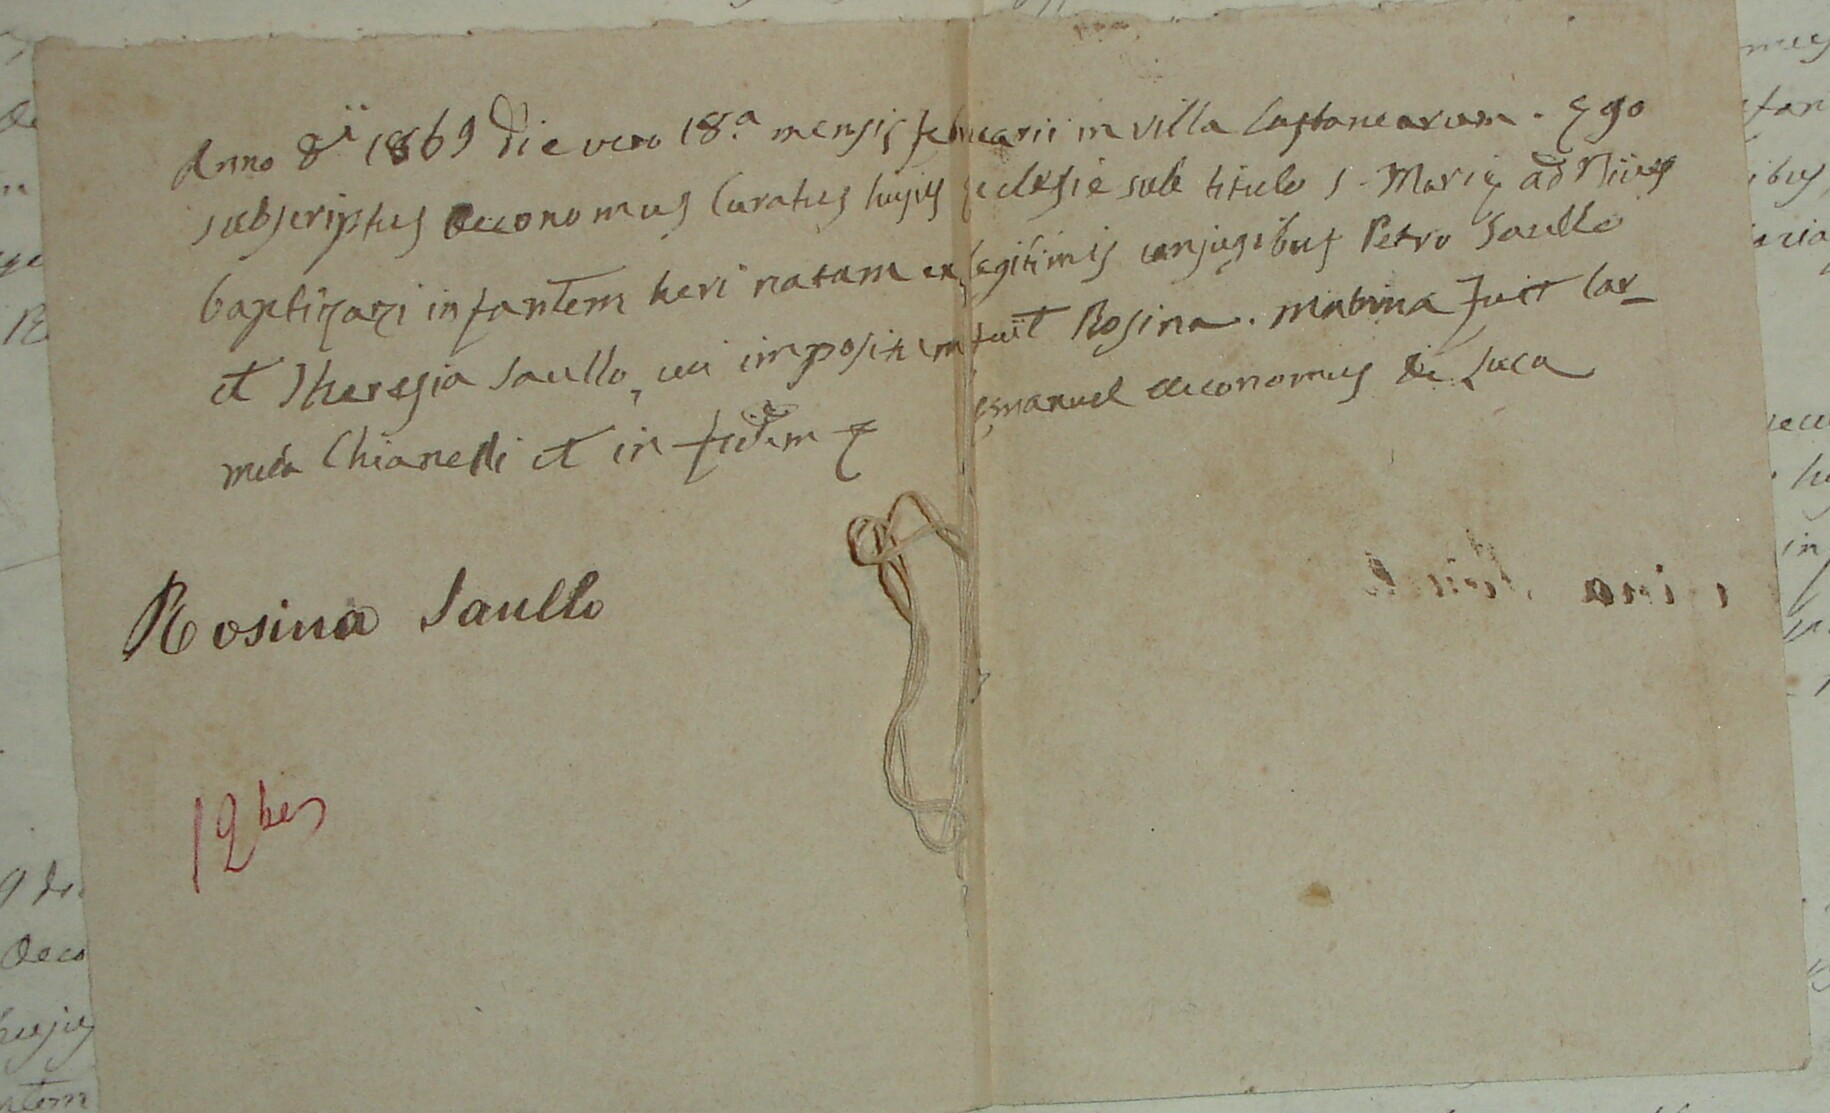 Anno Dⁱⁱ 1869 Die vero 18.ª mensis februarii in villa Castanearum. Ego
subscriptus Œconomus Curatus hujus ecclesiē sub titulo S. Marię ad Nives
baptizavi infantem heri natam ex legitimis conjugibus Petro Saullo
et Theresia Saullo, cui impositum fuit Rosina. Matrina fuit Car-
mela Chianelli et in fidem Emanuel œconomus de Luca
Rosina Saullo
12 bis